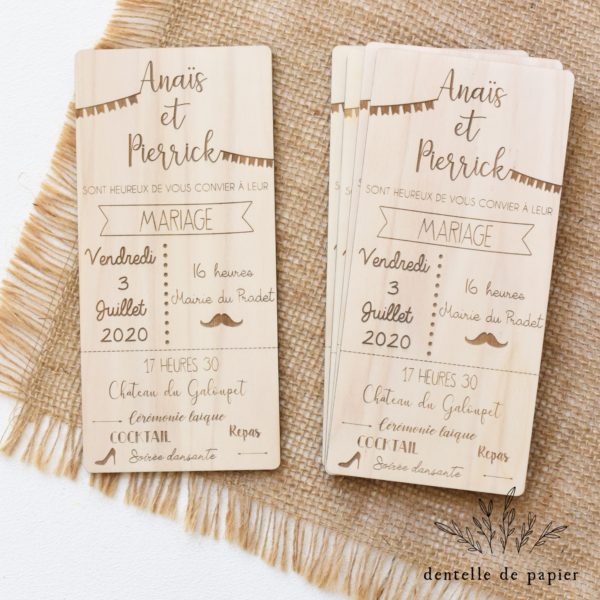 Anaïs
et
Pierrick
SONT HEUREUX DE VOUS CONVIER À LEUR
MARIAGE
Vendredi
3
Juillet
2020
16 heures
Mairie du Pradet
17 HEURES 30
Château du Galoupet
Cérémonie laïque
COCKTAIL
Repas
Soirée dansante
Anaïs
et
Pierrick
SONT HEUREUX DE VOUS CONVIER À LEUR
MARIAGE
Vendredi
3
Juillet
2020
16 heures
Mairie du Pradet
17 HEURES 30
Château du Galoupet
Cérémonie laïque
COCKTAIL
Repas
Soirée dansante
dentelle de papier